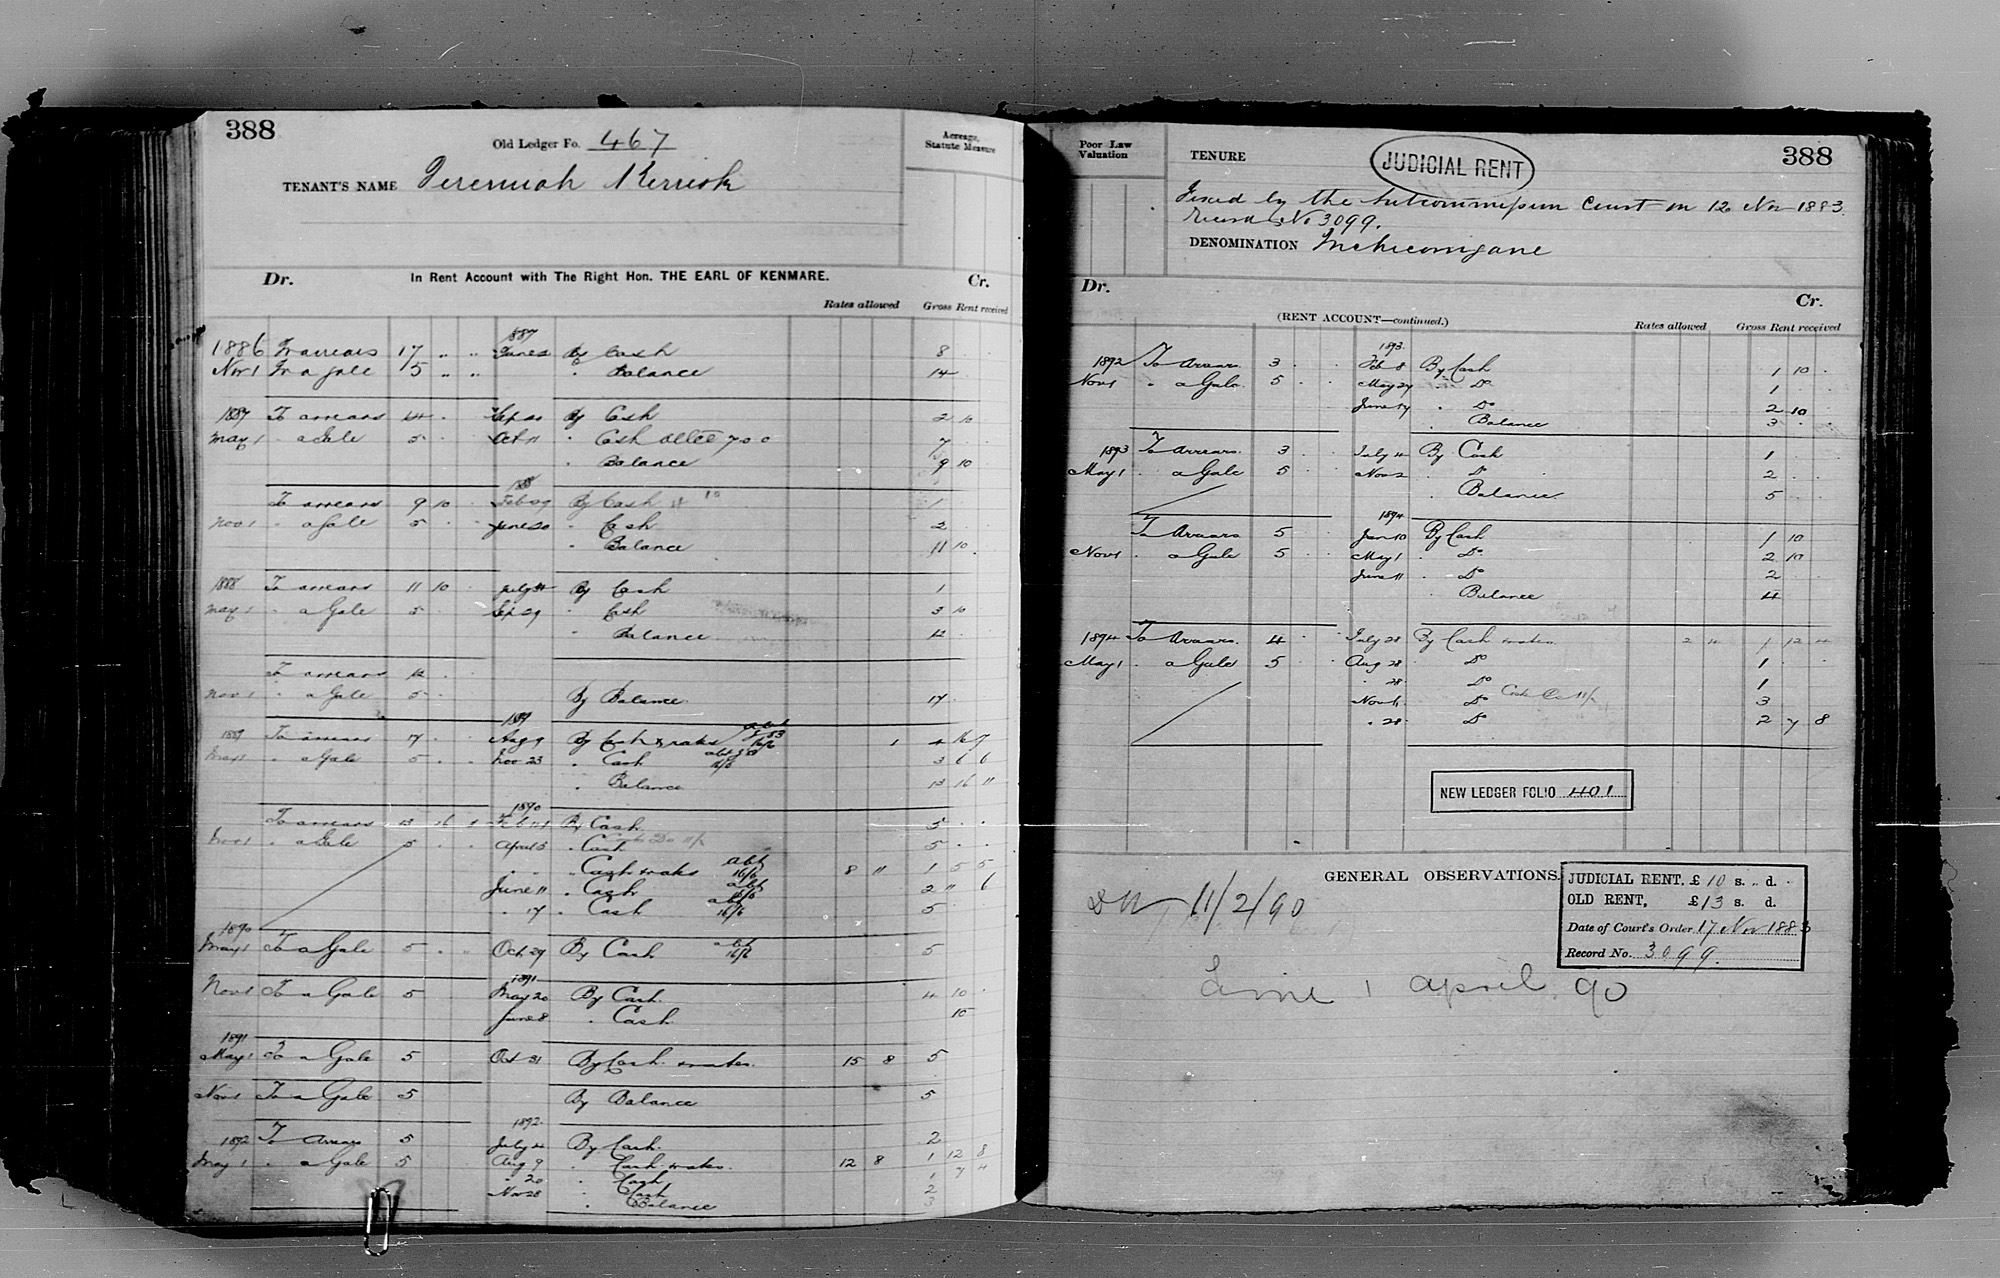 388
Old Ledger Fo. 467
Acreage, Statute Measure
TENANT'S NAME Jeremiah Kerrisk
Dr. In Rent Account with The Right Hon. THE EARL OF KENMARE. Cr.
Rates allowed Gross Rent received
1887
1886 To arrears 17 " " June 2 By Cash 8
Nov 1 To a gale 5 " " " Balance 14
1887 To arrears 14 By Cash 2 10
May 1 " a Gale 5 Oct 11 " Cash 7
" Balance 9 10
1888
To arrears 9 10 Feb 29 By Cash 1
Nov 1 " a Gale 5 June 20 " Cash 2
" Balance 11 10
1888 To arrears 11 10 July By Cash 1
May 1 " a Gale 5 Sep 29 " Cash 3 10
" Balance 12
To arrears 12
Nov 1 " a Gale 5 By Balance 17
1889
1889 To arrears 17 Aug 9 By Cash & rates 1 4 16 7
May 1 " a Gale 5 Nov 23 " Cash 3 6 6
" Balance 13 16 11
1890
To arrears 13 16 Feb By Cash 5
Nov 1 " a Gale 5 April 5 " Cash 5
" Cash & rates abt 16/6 8 11 1 5 5
June 11 " Cash abt 16/6 2 11 6
" 17 " Cash abt 16/6 5
1890
May 1 To a Gale 5 Oct 29 By Cash abt 16/6 5
1891
Nov 1 To a Gale 5 May 20 By Cash 4 10
June 8 " Cash 10
1891
May 1 To a Gale 5 Oct 31 By Cash & rates 15 8 5
Nov 1 To a Gale 5 By Balance 5
1892
1892 To Arrears 5 July 4 By Cash 2
May 1 " a Gale 5 Aug 9 " Cash & rates 12 8 1 12 8
" 20 " Cash 1 7 4
Nov 28 " Cash 2
" Balance 3
Poor Law Valuation
TENURE JUDICIAL RENT 388
Fixed by the Subcommission Court on 12 Nov 1883
Record No 3099.
DENOMINATION Inchicorrigane
Dr. Cr.
(RENT ACCOUNT—continued.) Rates allowed Gross Rent received
1893
1892 To Arrears 3 Feb 8 By Cash 1 10
Nov 1 " a Gale 5 May 27 " Do 1
June 17 " Do 2 10
" Balance 3
1893 To Arrears 3 July 4 By Cash 1
May 1 " a Gale 5 Nov 2 " Do 2
" Balance 5
1894
To Arrears 5 Jan 10 By Cash 1 10
Nov 1 " a Gale 5 May 1 " Do 2 10
June 11 " Do 2
" Balance 4
1894 To Arrears 4 July 28 By Cash & rates 2 4 1 12 4
May 1 " a Gale 5 Aug 28 Do 1
" 28 Do 1
Nov Do 3
" 28 Do 2 7 8
NEW LEDGER FOLIO 401
GENERAL OBSERVATIONS.
11/2/90
JUDICIAL RENT, £10 s. .. d.
OLD RENT, £13 s. d.
Date of Court's Order 17 Nov 1883
Record No. 3099.
Lime 1 April 90